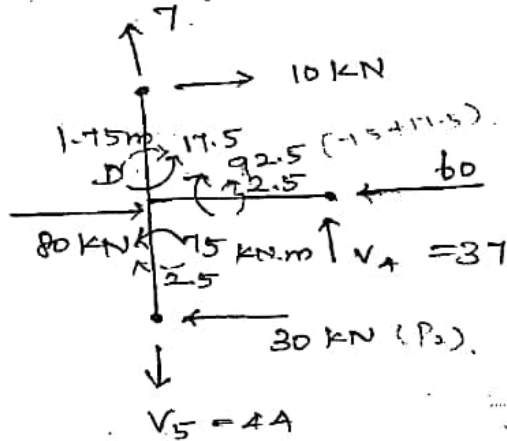 7
10 KN
1.75m 17.5
D 92.5 (75+17.5).
2.5 60
80 KN 75 KN.m V4 =37
2.5
30 KN (P2).
V5 = 44